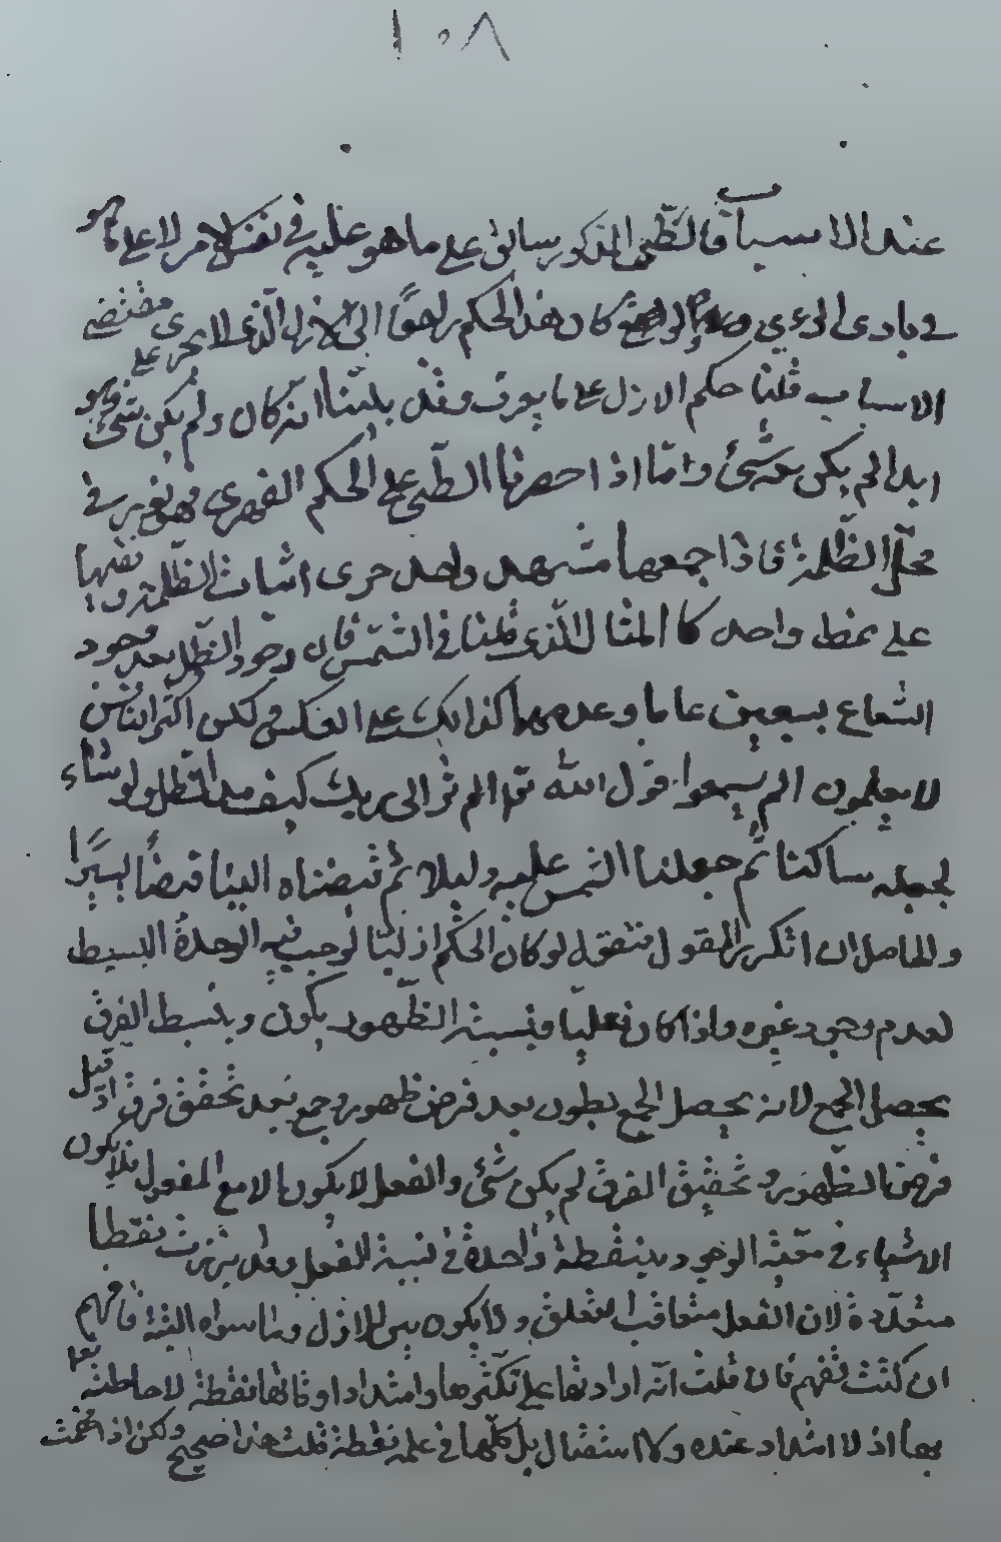 ١٠٨
عند الاسباب فالطبى المذكور سابق على ما هو عليه في نفس الامر لا على ما هو
في بادى الرءي كان هذا الحكم راجعًا الى الازل الذى لا يجرى على مقتضى
الاسباب قلنا حكم الازل على ما يعرف وقد بيّنا انه كان ولم يكن شئ وهو
ابدا لم يكن معه شئ وامّا اذا حصرنا الطبى على الحكم القهرى فهو يجرى في
محلّ الظلمة فاذا جمعها مشهد واحد جرى اثبات الظلمة ونفيها
على نمط واحد كالمثال الذى قلنا في الشمس فان وجود الظل بعد وجود
الشعاع بسبعين عاما وعدمهما كذلك على العكس ولكن اكثر الناس
لا يعلمون الم يسمعوا قول الله تعالى الم تر الى ربك كيف مد الظل ولو شاء
لجعله ساكنا ثم جعلنا الشمس عليه دليلا ثم قبضناه الينا قبضًا يسيرًا
والحاصل ان انكر المقول فنقول لو كان الحكم ازليّا لوجب فيه الوحدة البسيط
لعدم وجود غيره واذا كان فعليّا فبنسبة الظهور يكون وبنسبط الفرق
يحصل الجمع لانه يحصل الجمع بطون بعد فرض ظهور وجمع بعد تحقق فرق اذ قبل
فرض الظهور وتحقيق الفرق لم يكن شئ والفعل لا يكون الا مع المفعول فلا يكون
الاشياء في معيّة الوجود بنقطة واحدة في نسبة الفعل وقد برزت نقطا
متعدّدة لان الفعل متعاقب التعلق ولا يكون بين الازل وما سواه البتة فافهم
ان كنت تفهم فان قلت انه اراد بها على تكثّرها وامتداد اوقاتها نقطة لاحاطته بها
بها اذ لا امتداد عنده ولا استقبال بل كلّها في علمه نقطة قلت هذا صحيح ولكن اذا فهمت